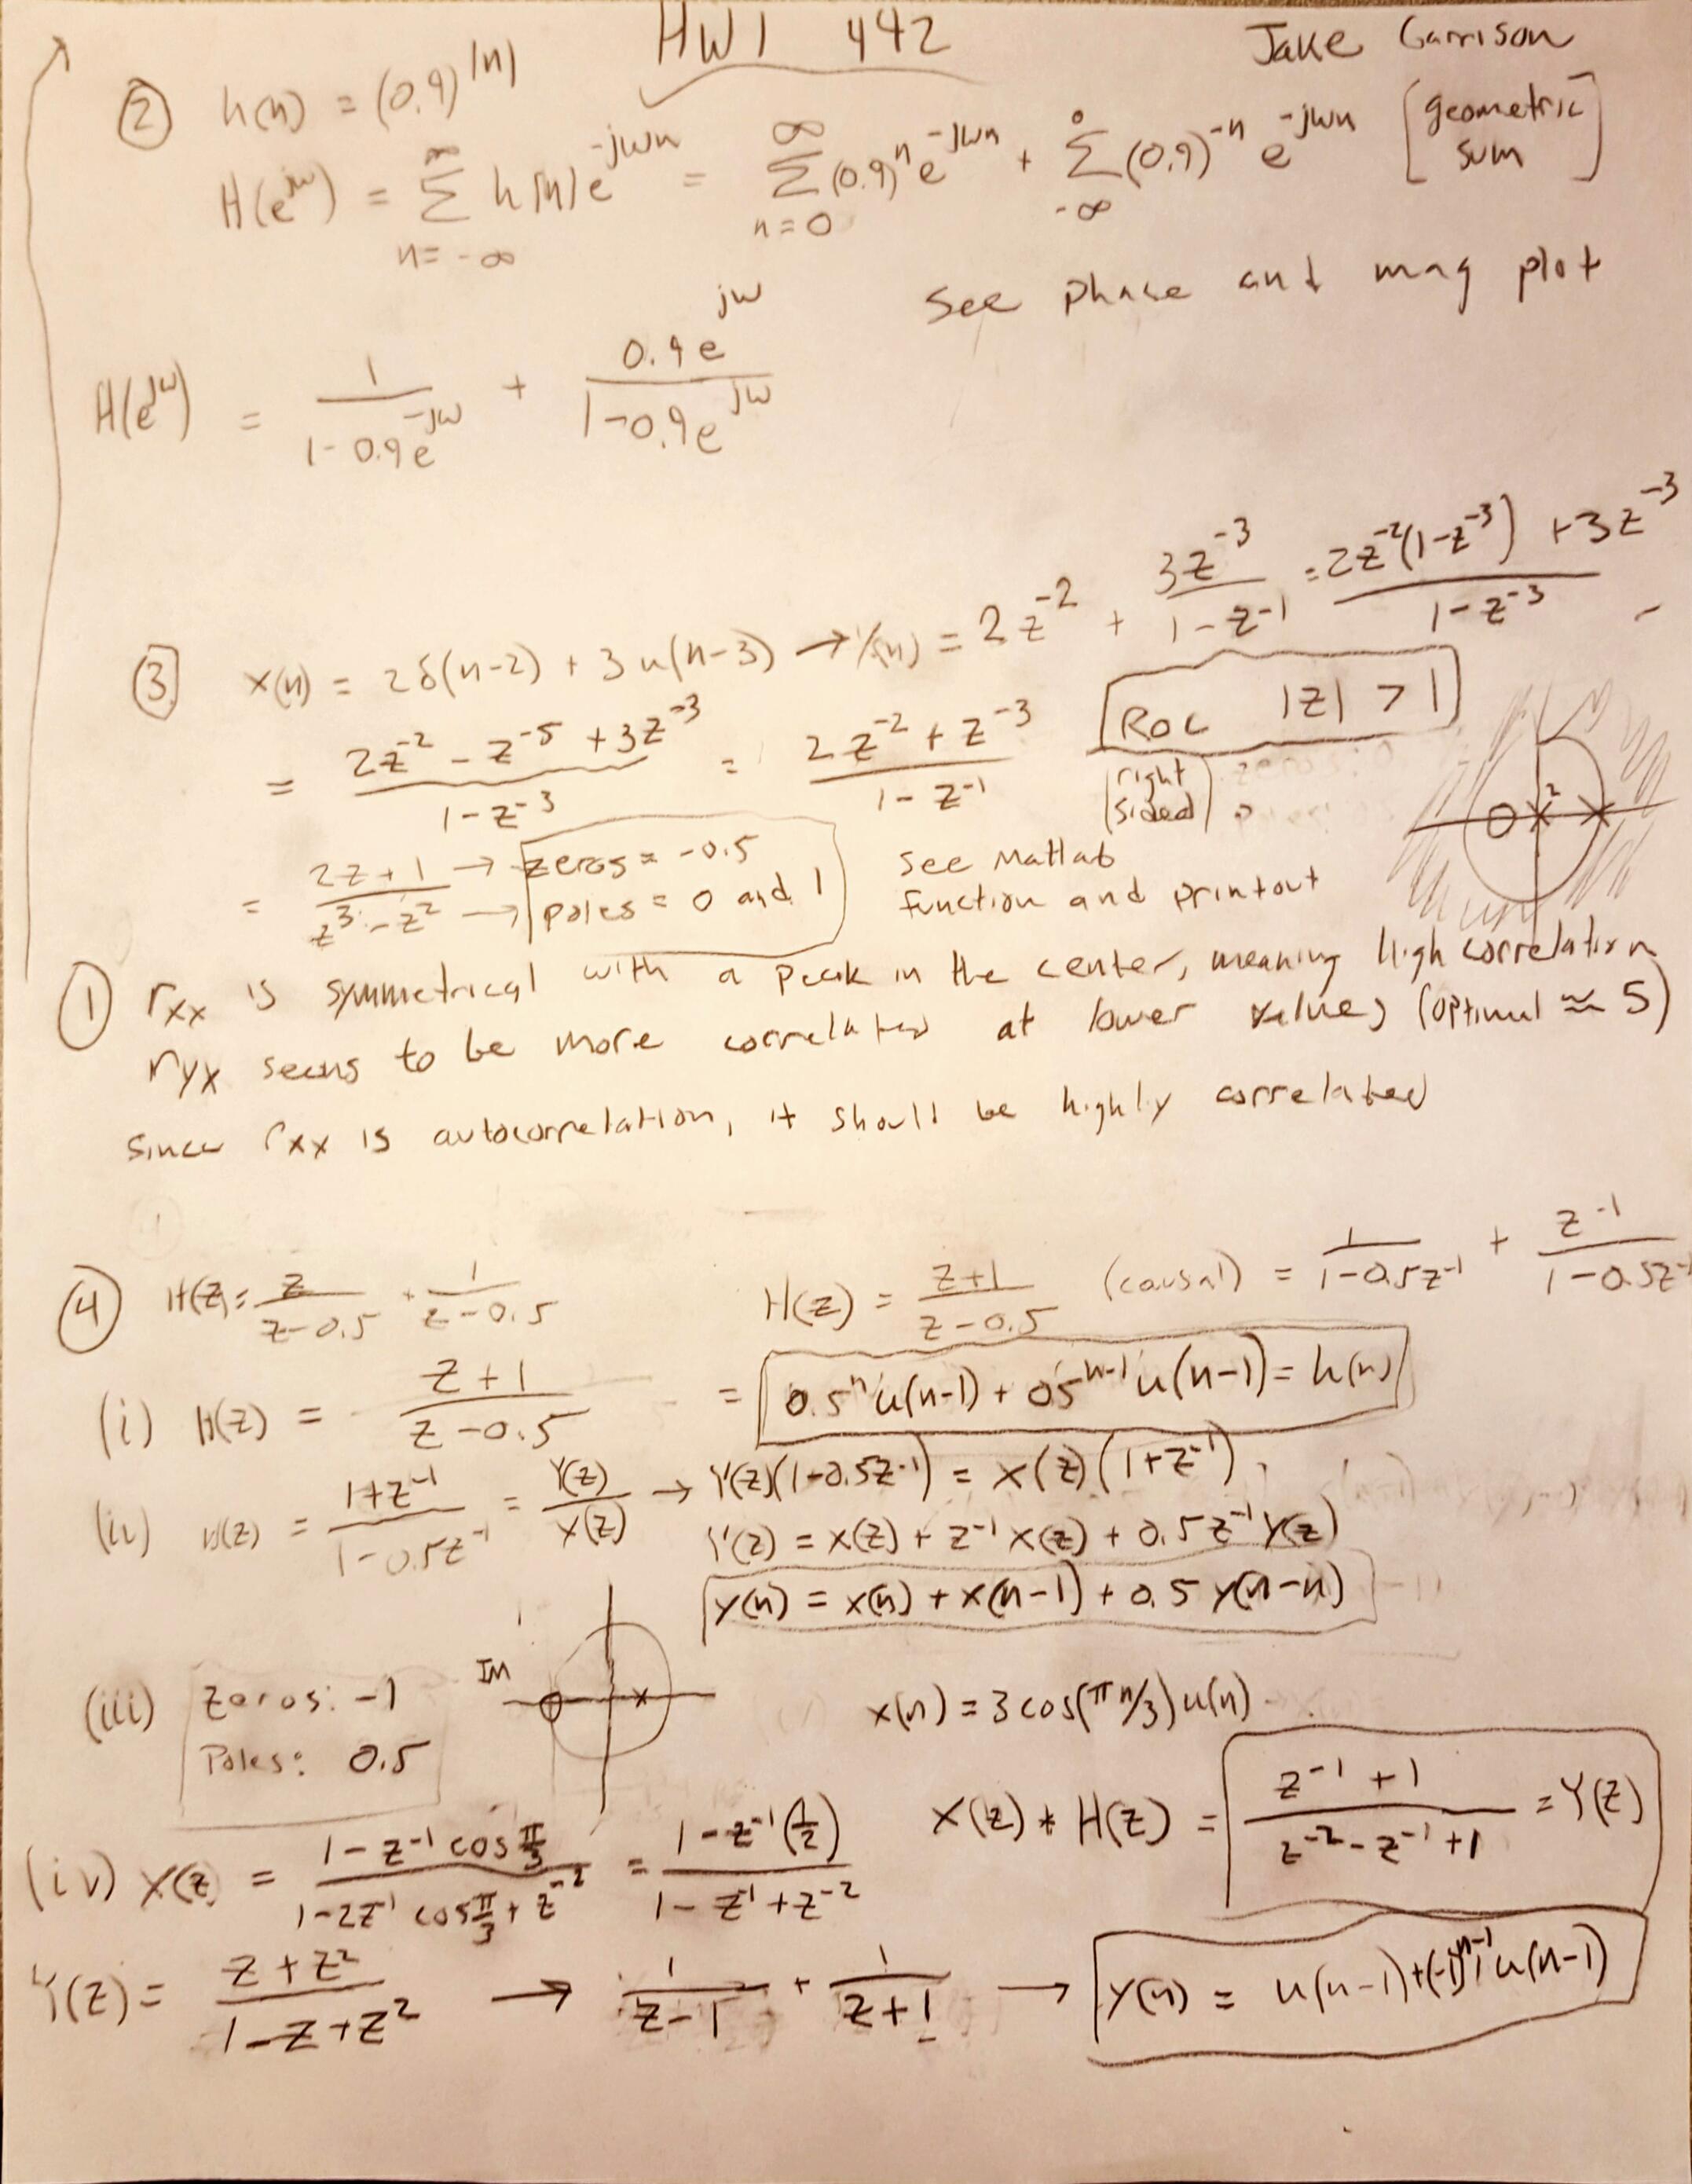 HW1 442
Jake Garrison
② h(n) = (0.9)^|n|
H(e^jω) = Σ_{n=-∞}^{∞} h(n)e^{-jωn} = Σ_{n=0}^{∞} (0.9)^n e^{-jωn} + Σ_{-∞}^{0} (0.9)^{-n} e^{-jωn} [geometric sum]
See phase and mag plot
H(e^jω) = 1/(1-0.9e^{-jω}) + 0.9e^{jω}/(1-0.9e^{jω})
③ x(n) = 2δ(n-2) + 3u(n-3) → X(n) = 2z^{-2} + 3z^{-3}/(1-z^{-1}) = (2z^{-2}(1-z^{-3}) + 3z^{-3})/(1-z^{-3})
= (2z^{-2} - z^{-5} + 3z^{-3})/(1-z^{-3}) = (2z^{-2} + z^{-3})/(1-z^{-1})
ROC |z| > 1
(right sided)
= (2z+1)/(z^3-z^2) → zeros = -0.5
→ poles = 0 and 1
see Matlab
function and printout
2
① rxx is symmetrical with a peak in the center, meaning high correlation
ryx seems to be more correlated at lower values (optimal ≈ 5)
since rxx is autocorrelation, it should be highly correlated
④ H(z) = z/(z-0.5) + 1/(z-0.5)
H(z) = (z+1)/(z-0.5) (causal) = 1/(1-0.5z^{-1}) + z^{-1}/(1-0.5z^{-1})
(i) H(z) = (z+1)/(z-0.5)
= 0.5^n u(n-1) + 0.5^{n-1} u(n-1) = h(n)
(ii) H(z) = (1+z^{-1})/(1-0.5z^{-1}) = Y(z)/X(z) → Y(z)(1-0.5z^{-1}) = X(z)(1+z^{-1})
Y(z) = X(z) + z^{-1}X(z) + 0.5z^{-1}Y(z)
y(n) = x(n) + x(n-1) + 0.5y(n-n)
(iii) Zeros: -1
Poles: 0.5
Im
x(n) = 3cos(πn/3)u(n)
(iv) X(z) = (1-z^{-1}cos π/3)/(1-2z^{-1}cos π/3 + z^{-2}) = (1-z^{-1}(1/2))/(1-z^{-1}+z^{-2})
X(z) * H(z) = (z^{-1}+1)/(z^{-2}-z^{-1}+1) = Y(z)
Y(z) = (z+z^2)/(1-z+z^2) → 1/(z-1) + 1/(z+1) → y(n) = u(n-1) + (-1)^{n-1} u(n-1)